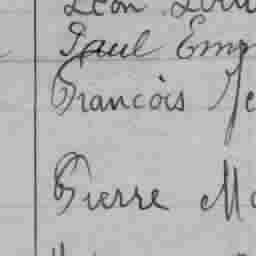 Léon
Paul Em
François
Pierre Ma